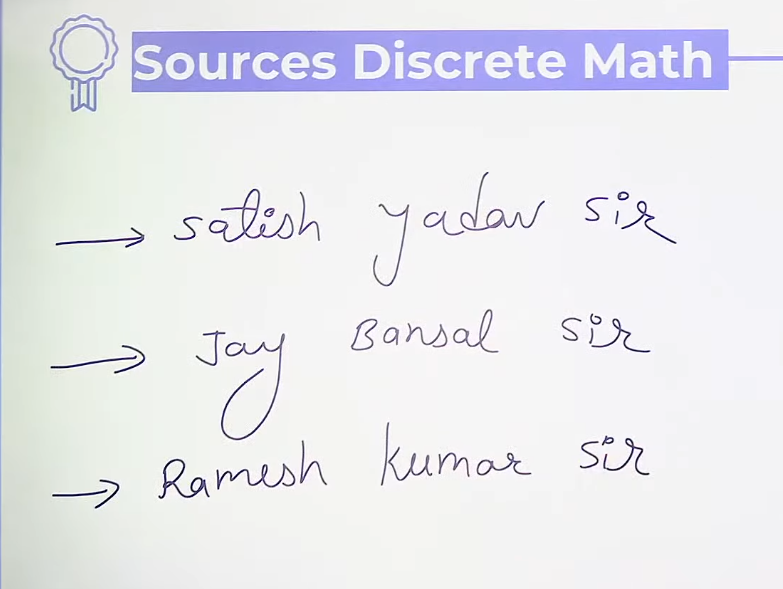 Sources Discrete Math
→ satish yadav sir
→ Jay Bansal sir
→ Ramesh kumar sir